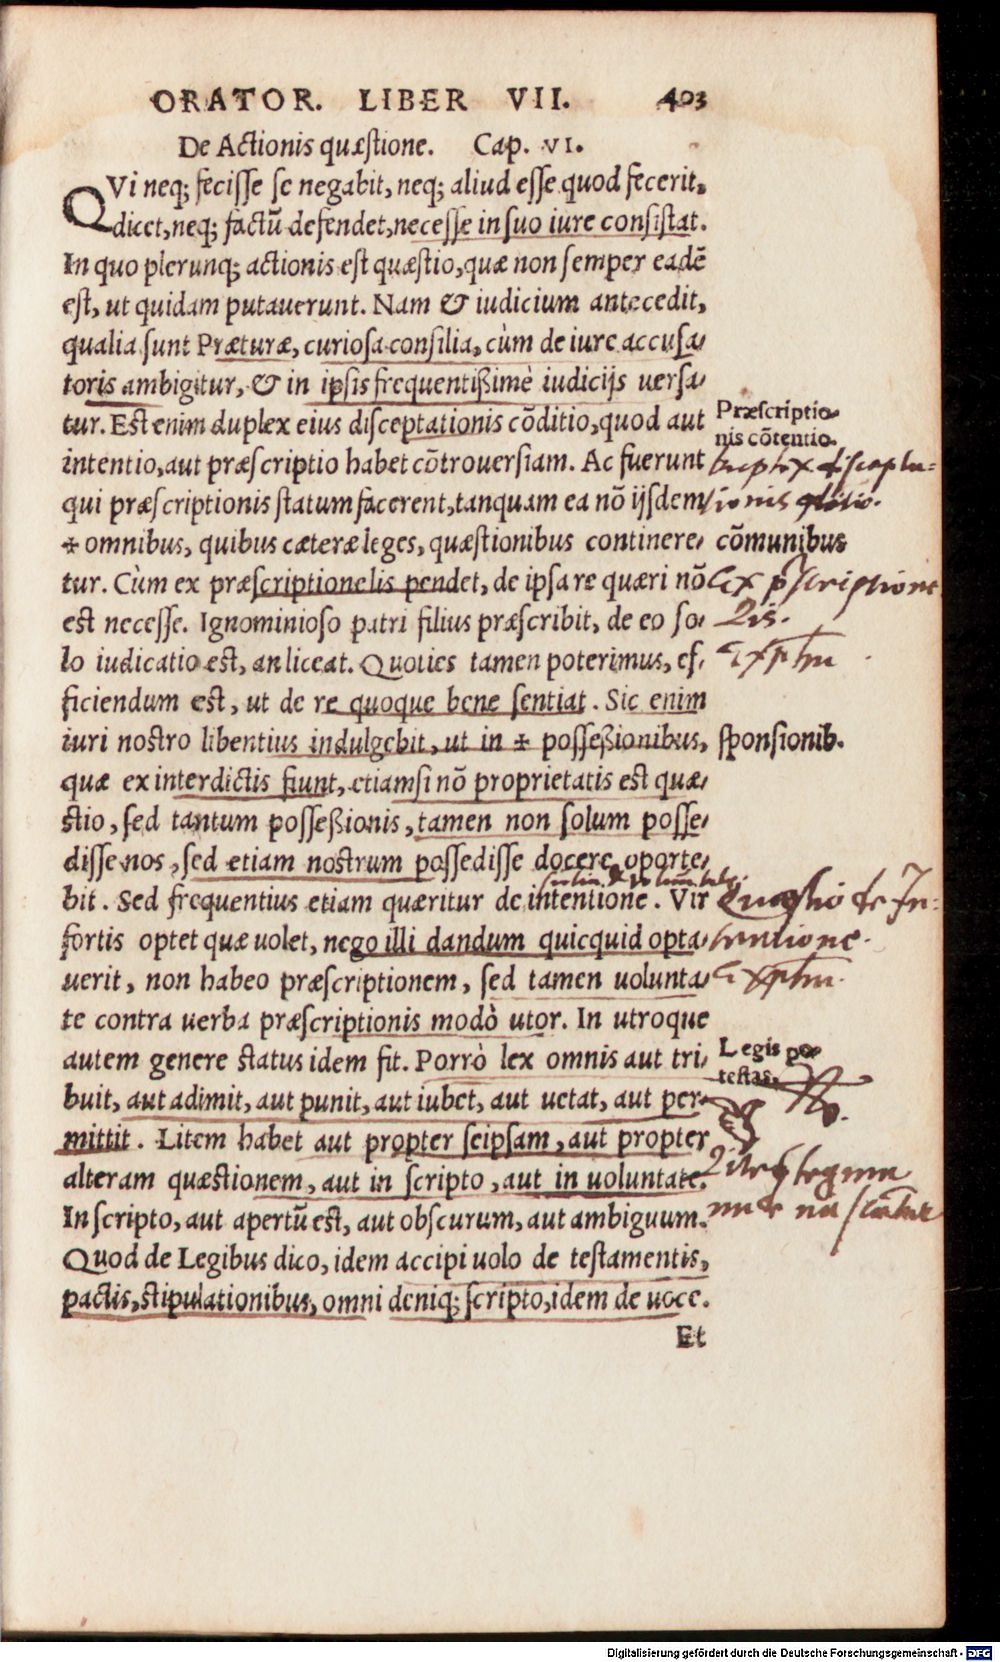 ORATOR. LIBER VII. 403
De Actionis quæstione. Cap. VI.
QVi neq; fecisse se negabit, neq; aliud esse quod fecerit,
dicet, neq; factũ defendet, necesse in suo iure consistat.
In quo plerunq; actionis est quæstio, quæ non semper eadẽ
est, ut quidam putauerunt. Nam & iudicium antecedit,
qualia sunt Præturæ, curiosa consilia, cùm de iure accusa-
toris ambigitur, & in ipsis frequentißimè iudicijs uersa-
tur. Est enim duplex eius disceptationis cõditio, quod aut
Præscriptio-
nis cõtentio.
intentio, aut præscriptio habet cõtrouersiam. Ac fuerunt
qui præscriptionis statum facerent, tanquam ea nõ ijsdem
✢ omnibus, quibus cæteræ leges, quæstionibus continere-
cõmunibus
tur. Cùm ex præscriptione lis pendet, de ipsa re quæri nõ
est necesse. Ignominioso patri filius præscribit, de eo so-
lo iudicatio est, an liceat. Quoties tamen poterimus, ef-
ficiendum est, ut de re quoque bene sentiat. Sic enim
iuri nostro libentius indulgebit, ut in ✢ possessionibus,
sponsionib.
quæ ex interdictis fiunt, etiamsi nõ proprietatis est quæ-
stio, sed tantum possessionis, tamen non solum posse-
disse nos, sed etiam nostrum possedisse docere oporte-
bit. Sed frequentius etiam quæritur de intentione. Vir
fortis optet quæ uolet, nego illi dandum quicquid opta-
uerit, non habeo præscriptionem, sed tamen uolunta-
te contra uerba præscriptionis modò utor. In utroque
autem genere status idem fit. Porrò lex omnis aut tri-
Legis po-
testas.
buit, aut adimit, aut punit, aut iubet, aut uetat, aut per-
mittit. Litem habet aut propter seipsam, aut propter
alteram quæstionem, aut in scripto, aut in uoluntate.
In scripto, aut apertũ est, aut obscurum, aut ambiguum.
Quod de Legibus dico, idem accipi uolo de testamentis,
pactis, stipulationibus, omni deniq; scripto, idem de uoce.
Et
Digitalisierung gefördert durch die Deutsche Forschungsgemeinschaft - DFG